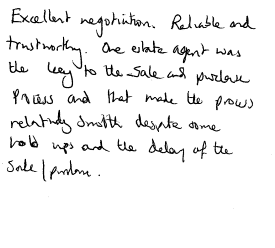 Excellent negotiation. Reliable and
trustworthy. One estate agent was
the key to the sale and purchase
process and that made the process
relatively smooth despite some
hold ups and the delay of the
sale / purchase.